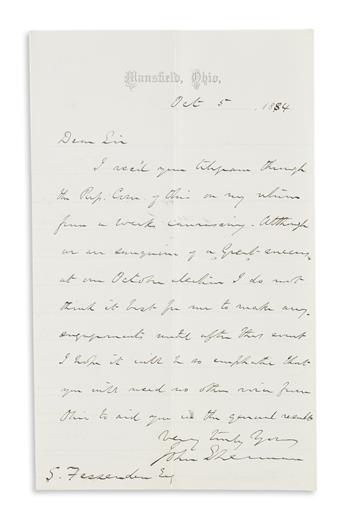 Mansfield, Ohio,
Oct 5 1884
Dear Sir
I rec'd your telegram through
the Rep. Com. of Ohio on my return
from a weeks canvassing. Although
we are sanguine of a Great success
at our October election I do not
think it best for me to make any
engagements until after that event
I hope it will be so emphatic that
you will need no other voice from
Ohio to aid you in the general result
Very truly Yours
John Sherman
S. Fessenden Esq